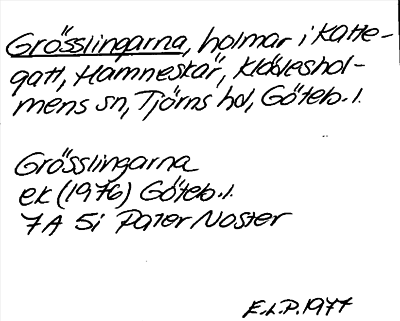 Grösslingarna, holmar i Katte-
gatt, Hamneskär, Klädeshol-
mens sn, Tjörns hd, Göteb. l.
Grösslingarna
ek (1976) Göteb. l.
7A 5i Pater Noster
E.L.P. 1977